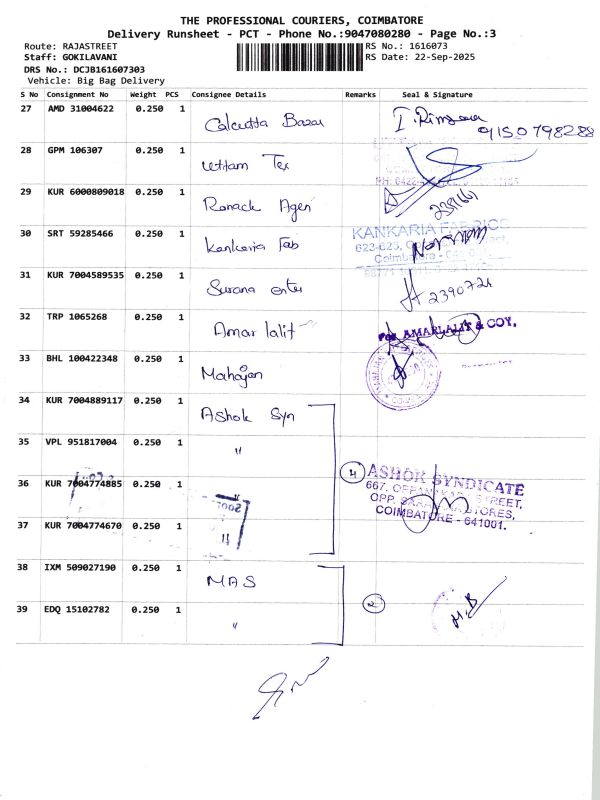 THE PROFESSIONAL COURIERS, COIMBATORE
Delivery Runsheet - PCT - Phone No.:9047080280 - Page No.:3
Route: RAJASTREET RS No.: 1616073
Staff: GOKILAVANI RS Date: 22-Sep-2025
DRS No.: DCJB161607303
Vehicle: Big Bag Delivery
S No Consignment No Weight PCS Consignee Details Remarks Seal & Signature
27 AMD 31004622 0.250 1 Calcutta Bazar 9150798288
28 GPM 106307 0.250 1 Uttam Tex
29 KUR 6000809018 0.250 1 Ronack Agen
30 SRT 59285466 0.250 1 Kankaria Fab
KANKARIA FABRICS
31 KUR 7004589535 0.250 1 Surana enter 2390724
32 TRP 1065268 0.250 1 Amar lalit
For AMARLALIT & COY.
33 BHL 100422348 0.250 1 Mahajan
34 KUR 7004889117 0.250 1 Ashok Syn
35 VPL 951817004 0.250 1 "
4 ASHOK SYNDICATE
36 KUR 7004774885 0.250 1 "
667, OPPANAKARA STREET,
OPP. STORES,
COIMBATORE - 641001.
37 KUR 7004774670 0.250 1 "
38 IXM 509027190 0.250 1 MAS
39 EDQ 15102782 0.250 1 " 2 M.B